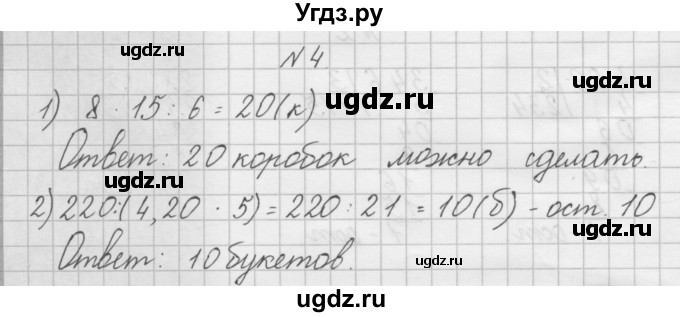 Угдз.ру
ugdz.ru
№4
ugdz.ru
1) 8 · 15 : 6 = 20(к)
ugdz.ru
Ответ: 20 коробок можно сделать.
ugdz.ru
2) 220:(4,20 · 5) = 220 : 21 = 10(б) - ост. 10
Ответ: 10 букетов.
ugdz.ru
ugdz.ru
ugdz.ru